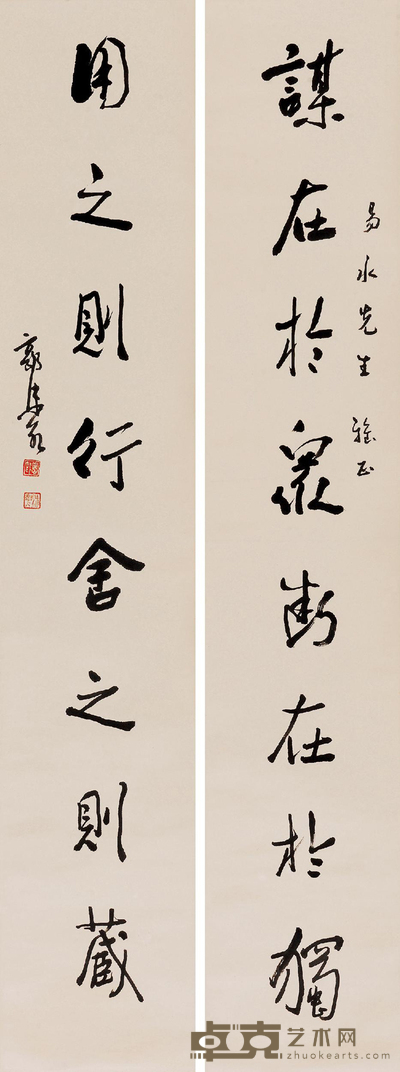 易水先生雅正
謀在於眾斷在於獨
用之則行舍之則藏
卓克艺术网
zhuokearts.com